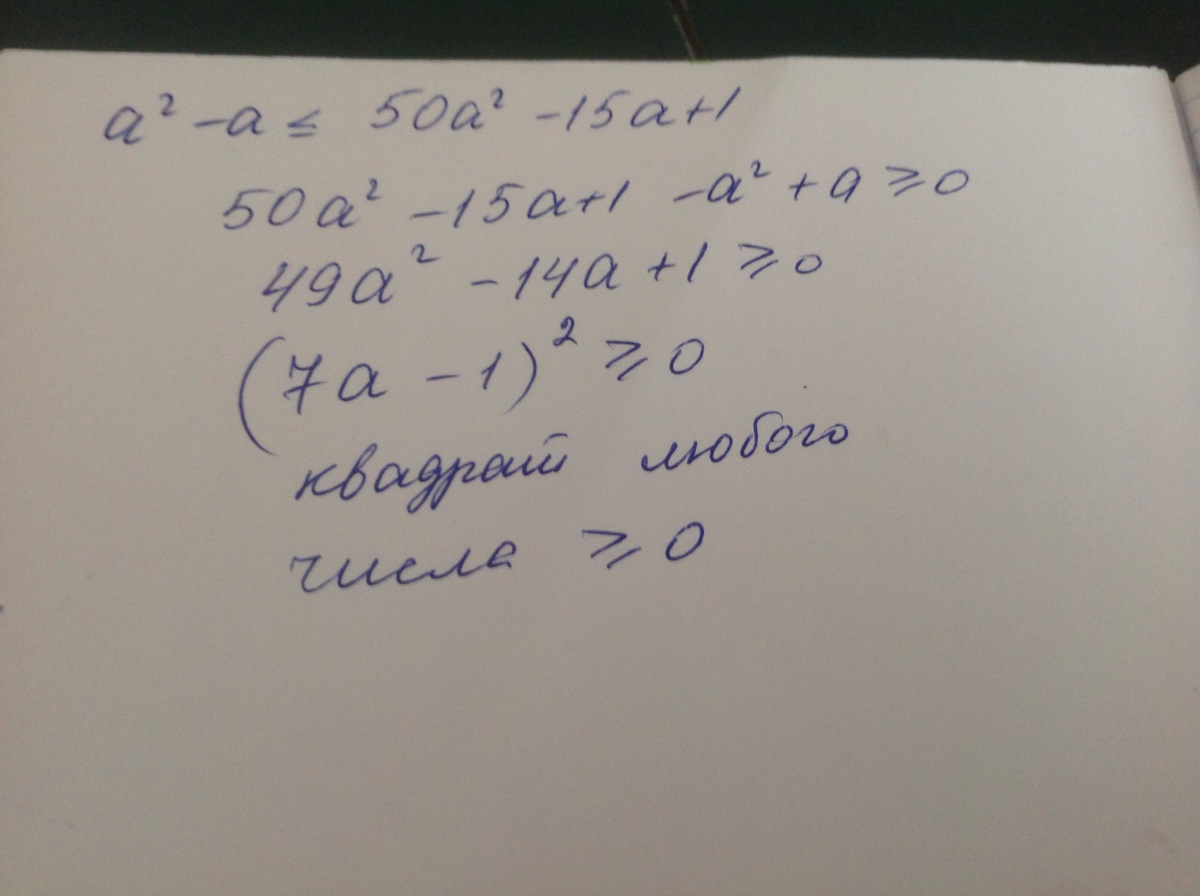 a² - a ≤ 50a² - 15a + 1
50a² - 15a + 1 - a² + a ≥ 0
49a² - 14a + 1 ≥ 0
(7a - 1)² ≥ 0
квадрат любого
числа ≥ 0